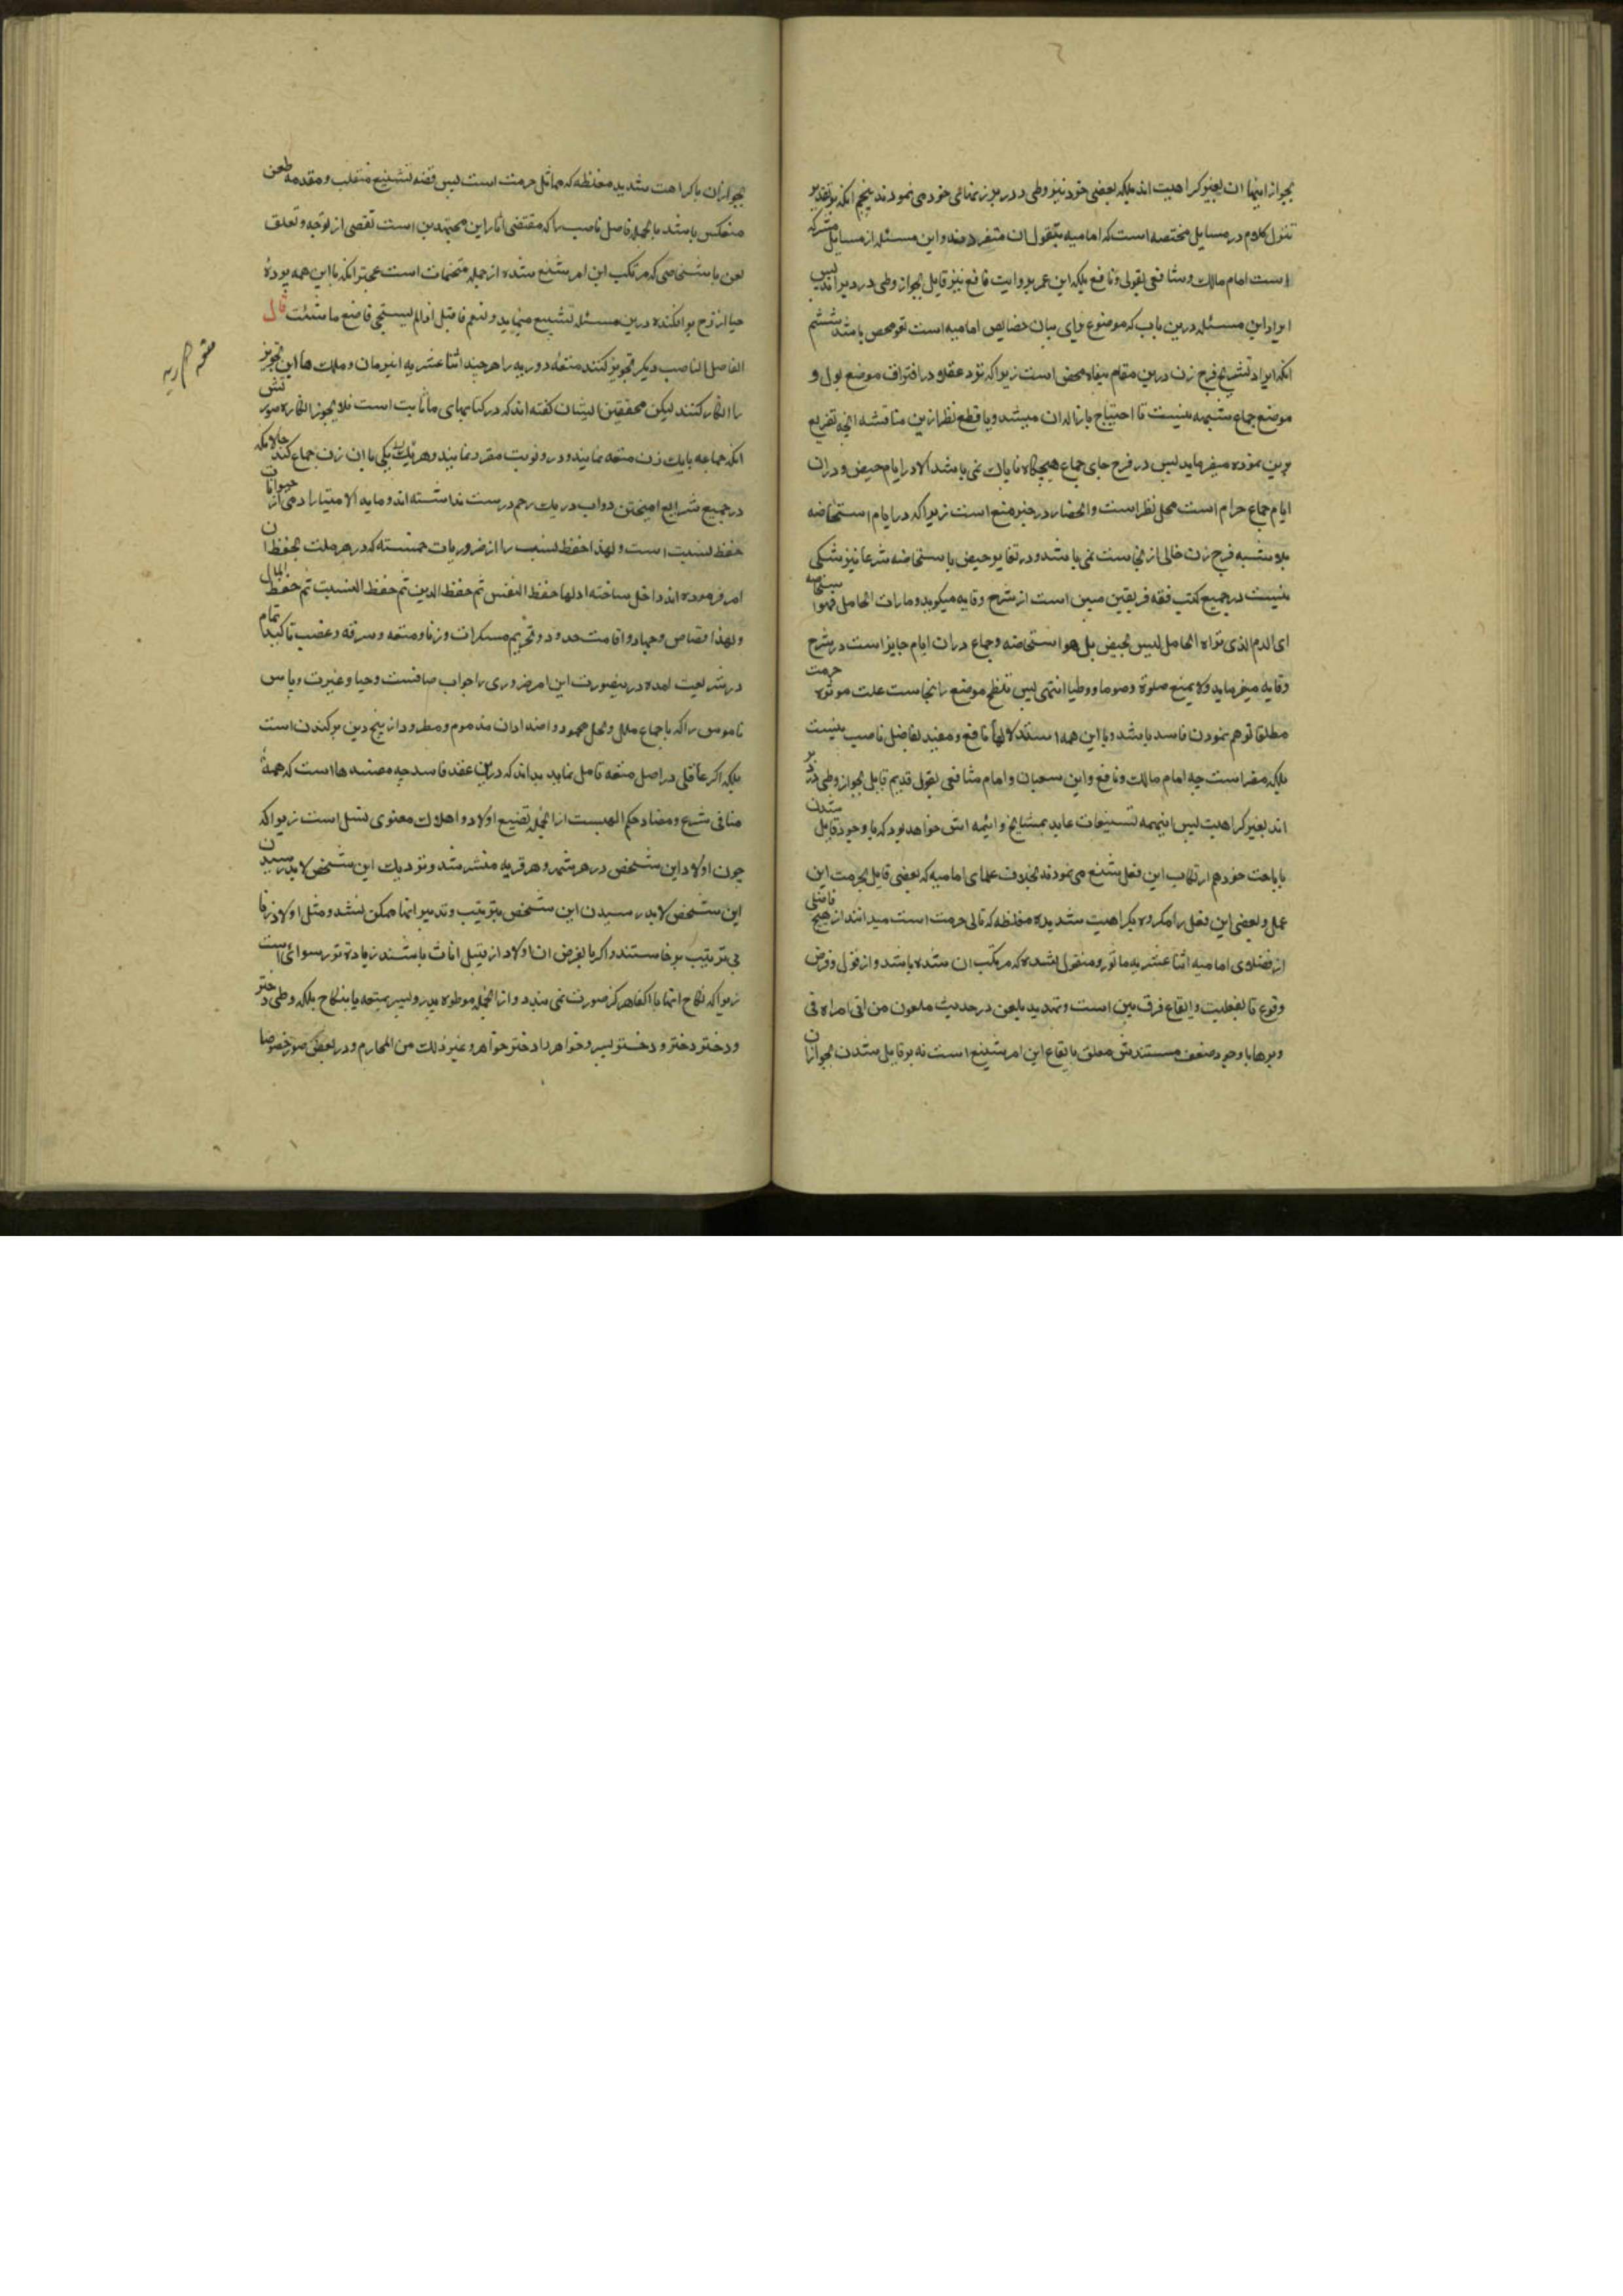 بجواز اینها ان بغیر کراهیت اند بلکه بعضی خود نیز وطی در دبر زنهای خود می نمودند پنجم انکه بر تقدیر
تنزل کلام در مسایل مختصه است که امامیه بقول ان متفرد بوند و این مسئله از مسایل مشترکه
است امام مالک و شافعی بقولی و نافع بلکه ابن عمر بروایت نافع نیز قایل بجواز وطی در دبر اند پس
ایراد این مسئله درین باب که موضوع برای بیان خصایص امامیه است لغو محض باشد ششم
انکه ایراد تشریح فرج زن درین مقام بیفایده محض است زیرا که نزد عقلا در افتراق موضع بول و
موضع جماع شبهه نیست تا احتیاج بازاله ان میشد و با قطع نظر ازین مناقشه انچه تفریع
برین نموده میفرماید پس در فرج جای جماع هیچگاه ناپاک نمی باشد الا در ایام حیض و دران
ایام جماع حرام است محل نظر است و انحصار در حیز منع است زیرا که در ایام استحاضه
بلا شبهه فرج زن خالی از نجاست نمی باشد و در تغایر حیض با استحاضه شرعا نیز شکی
نیست در جمیع کتب فقه فریقین مبین است از شرح وقایه میگوید و مارات الحامل فهو استحاضه
ای الدم الذی تراه الحامل لیس بحیض بل هو استحاضه و جماع دران ایام جایز است در شرح
وقایه میفرماید و لا یمنع صلوة و صوما و وطیا انتهی پس تلطخ موضع را بنجاست علت موثره حرمت
مطلقا توهم نمودن فاسد باشد و با این همه استدلالها نافع و مفید بفاضل ناصب نیست
بلکه مضر است چه امام مالک و نافع و ابن سحبان و امام شافعی بقول قدیم قایل بجواز وطی در دبر
اند بغیر کراهیت پس اینهمه تشنیعات عاید بمشایخ و ائمه اش خواهد بود که با وجود قایل شدن
باباحت خود هم ارتکاب این فعل شنیع می نمودند بخلاف علمای امامیه که بعضی قایل بحرمت این
عمل و بعضی این فعل را مکروه بکراهیت شدیده مغلظه که تالی حرمت است میدانند از هیچ فاضلی
از فضلای امامیه اثنا عشریه ماثور و منقول نشده که مرتکب ان شده باشد و از قول و فرض
وقوع تا بفعلیت و ایقاع فرق بین است و تهدید بلعن در حدیث ملعون من اتی امراه فی
دبرها با وجود ضعف مستندش معلق بایقاع این امر شنیع است نه بر قایل شدن بجواز ان
بجواز ان با کراهت شدید مغلظه که مماثل حرمت است پس قضیه تشنیع منقلب و مقدمه طعن
منعکس باشد بالجمله فاضل ناصب را که مقتفی اثار این مجتهدین است تفصی از توجه و تعلق
لعن با شخاصی که مرتکب این امر شنیع شده از جمله متحتمات است عجبتر انکه با این همه پرده
حیا از رخ بر افکنده درین مسئله تشنیع مینماید و لنعم ما قیل اذا لم یستحی فاصنع ما شئت قال
الفاضل الناصب دیگر تجویز کنند متعه دوریه را هر چند اثنا عشریه این زمان و ملک ها این تجویز
را انکار کنند لیکن محققین ایشان گفته اند که در کتابهای ما ثابت است فلا یجوز انکاره صورتش
انکه جماعه با یک زن متعه نمایند و دور و نوبت مقرر نمایند و هر یک بنوبت یکی با ان زن جماع کند حالانکه
در جمیع شرایع امیختن دو اب در یک رحم درست نداشته اند و مابه الامتیاز ادمی از حیوانات
حفظ نسب است و لهذا حفظ نسب را از ضروریات خمسه که در هر ملت بحفظ ان
امر فرموده اند داخل ساخته اولها حفظ النفس ثم حفظ الدین ثم حفظ النسب ثم حفظ المال
و لهذا قصاص و جهاد و اقامت حدود و تحریم مسکرات و زنا و متعه و سرقه و غصب تاکید تمام
در شریعت امده درینصورت این امر ضروری را جواب صافست و حیا و غیرت و پاس
ناموس را که باجماع ملل و نحل محمود و اضداد ان مذموم و مطرود از بیخ دین برکندن است
بلکه اگر عاقلی در اصل متعه تامل نماید بداند که درین عقد فاسد چه مفسدها است که همه
منافی شرع و مضاد حکم الهیست از انجمله تضییع اولاد و اهلاک معنوی نسل است زیرا که
چون اولاد این شخص در هر شهر و هر قریه منتشر شد و نزدیک این شخص لابد رسیدن
این شخص لابد رسیدن این شخص بترتیب و تدبیر انها ممکن نشد و مثل اولاد زنا
بی تربیت برخاستند و اگر بالفرض ان اولاد از قبیل اناث باشند زیاده تر رسوائی است
زیرا که نکاح انها با اکفا هرگز صورت نمی بندد و از انجمله موطوه پدر و پسر بمتعه یا بنکاح بلکه وطی دختر
و دختر دختر و دختر پسر و خواهر یا دختر خواهر و غیر ذلک من المحارم و در بعض صور خصوصا